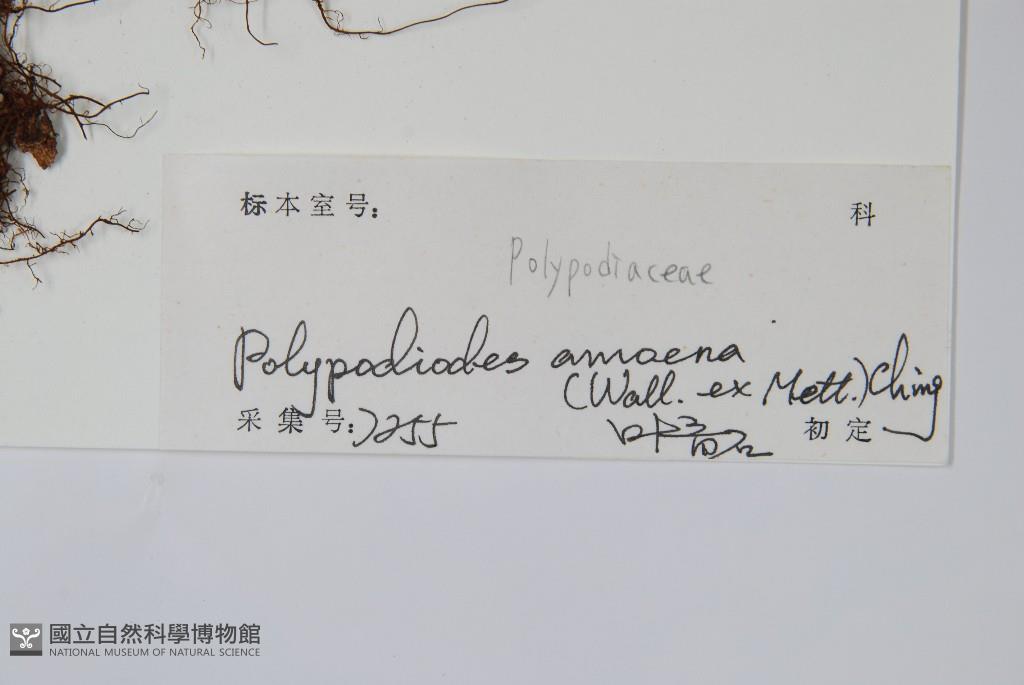 标本室号: 科
Polypodiaceae
Polypodiodes amoena
(Wall. ex Mett.) Ching
采集号: 7255 初定
國立自然科學博物館
NATIONAL MUSEUM OF NATURAL SCIENCE